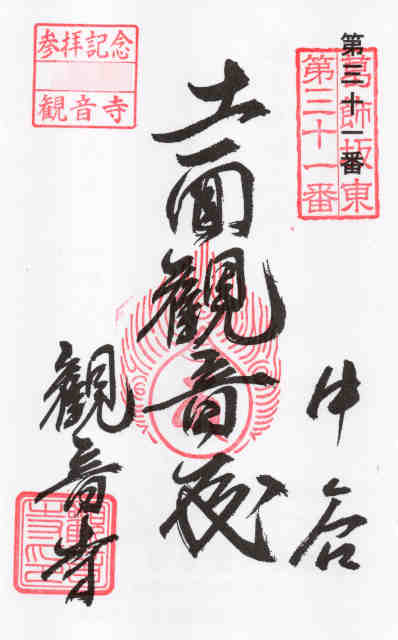 第三十一番
葛飾坂東
第三十一番
十一面觀音
觀音寺
参拝記念
観音寺